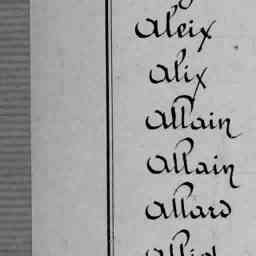 Aleix
Alix
Allain
Allain
Allard